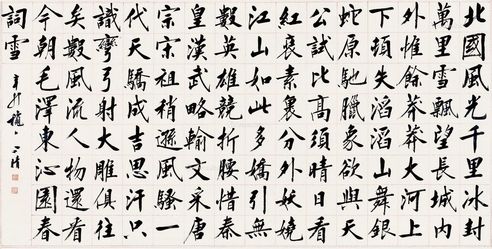 北國風光千里冰封
萬里雪飄望長城内
外惟餘莽莽大河上
下頓失滔滔山舞銀
蛇原馳臘象欲與天
公試比高須晴日看
紅裹素裹分外妖嬈
江山如此多嬌引無
數英雄競折腰惜秦
皇漢武略輸文采唐
宗宋祖稍遜風騷一
代天驕成吉思汗只
識彎弓射大雕俱往
矣數風流人物還看
今朝毛澤東沁園春
詞雪